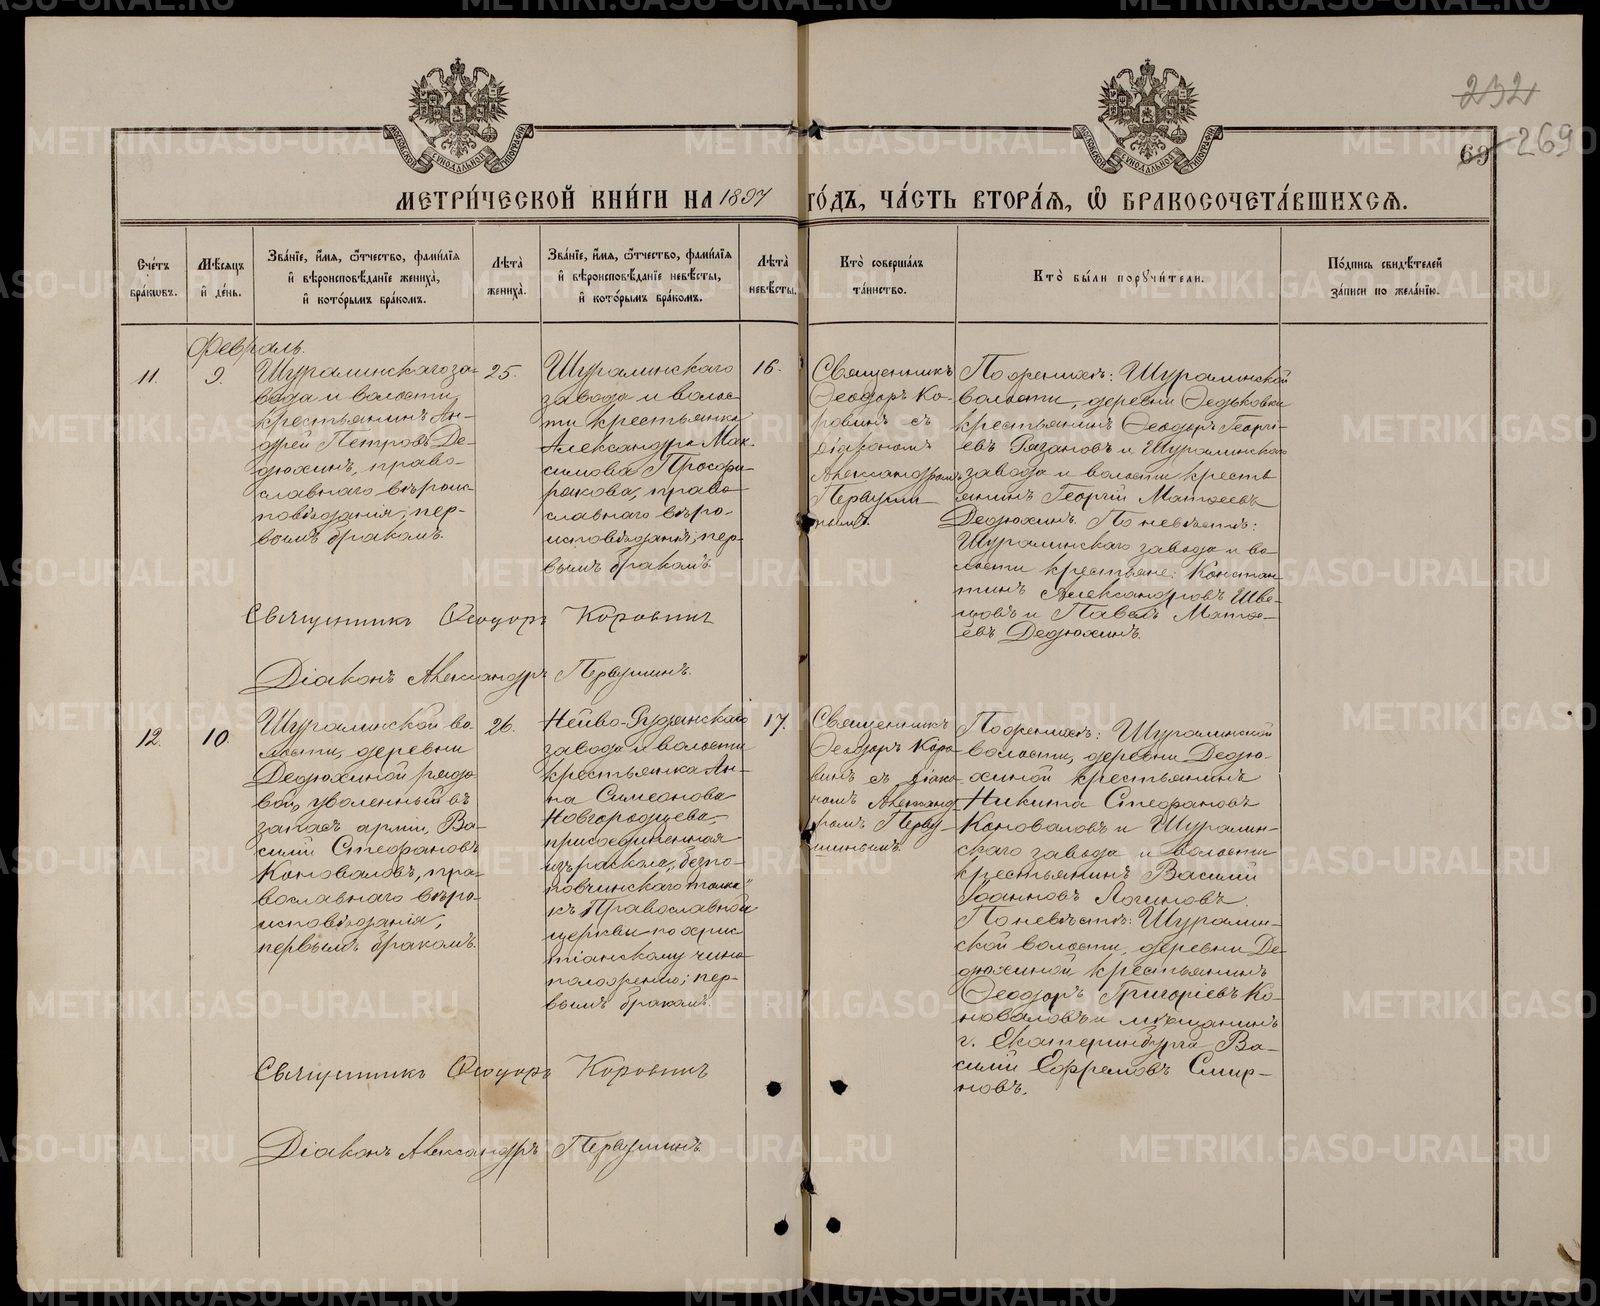 232
69 269
МЕТРИ́ЧЕСКОЙ КНИ́ГИ НА 1897 ГО́ДЪ, ЧА́СТЬ ВТОРА́Я, Ѽ БРАКОСОЧЕТА́ВШИХСЯ.
Сче́тъ
бра́ковъ.
Мѣ́сяцъ
и҆ де́нь.
Зва́нїе, и҆́мя, ѻ҆́тчество, фамилі́я
и҆ вѣроисповѣ́данїе жениха̀,
и҆ кото́рымъ бра́комъ.
Лѣта̀
жениха̀.
Зва́нїе, и҆́мя, ѻ҆́тчество, фамилі́я
и҆ вѣроисповѣ́данїе невѣ́сты,
и҆ кото́рымъ бра́комъ.
Лѣта̀
невѣ́сты.
Кто̀ соверша́лъ
та́инство.
Кто̀ бы́ли порꙋчи́тели.
По́дпись свидѣ́телей
за́писи по жела́нїю.
Февраль.
11.
9.
Шуралинскаго за-
вода и волости,
крестьянинъ Ан-
дрей Петровъ Де-
дюхинъ, право-
славнаго вѣроис
повѣданія, пер-
вымъ бракомъ.
25.
Шуралинскаго
завода и волос
ти крестьянка
Александра Мак-
симова Просфи
ракова, право
славнаго вѣро-
исповѣданія, пер-
вымъ бракомъ.
16.
Священникъ
Ѳеодоръ Ко-
ровинъ съ
діакономъ
Александромъ
Первуши
нымъ.
По женихѣ: Шуралинской
волости, деревни Ѳедьковки
крестьянинъ Ѳеодоръ Георгі-
евъ Рязановъ и Шуралинскаго
завода и волости кресть
янинъ Георгій Матѳеевъ
Дедюхинъ. По невѣстѣ:
Шуралинскаго завода и во-
лости крестьяне: Констан
тинъ Александровъ Шве-
цовъ и Павелъ Матѳе-
евъ Дедюхинъ.
Священникъ Ѳеодоръ Коровинъ
Діаконъ Александръ Первушинъ.
12.
10.
Шуралинской во-
лости, деревни
Дедюхиной рядо
вой, уволенный въ
запасъ арміи, Ва-
силій Стефановъ
Коноваловъ, пра-
вославнаго вѣро-
исповѣданія,
первымъ бракомъ.
26.
Нейво-Рудянскаго
завода и волости
крестьянка Ан-
на Симеонова
Новгородцева,
присоединенная
изъ раскола, „безпо-
повчинскаго толка“
къ Православной
церкви по хрис
тіанскому чино
положенію; пер-
вымъ бракомъ.
17.
Священникъ
Ѳеодоръ Коро-
винъ съ діако-
номъ Александ
ромъ Перву-
шинымъ.
По женихѣ: Шуралинской
волости, деревни Дедю-
хиной крестьянинъ
Никита Стефановъ
Коноваловъ и Шуралин-
скаго завода и волости
крестьянинъ Василій
Іоанновъ Логиновъ.
По невѣстѣ: Шуралин-
ской волости, деревни Де-
дюхиной крестьянинъ
Ѳеодоръ Григоріевъ Ко-
новаловъ и мѣщанинъ
г. Екатеринбурга Ва-
силій Ефремовъ Смир-
новъ.
Священникъ Ѳеодоръ Коровинъ
Діаконъ Александръ Первушинъ.
METRIKI.GASO-URAL.RU